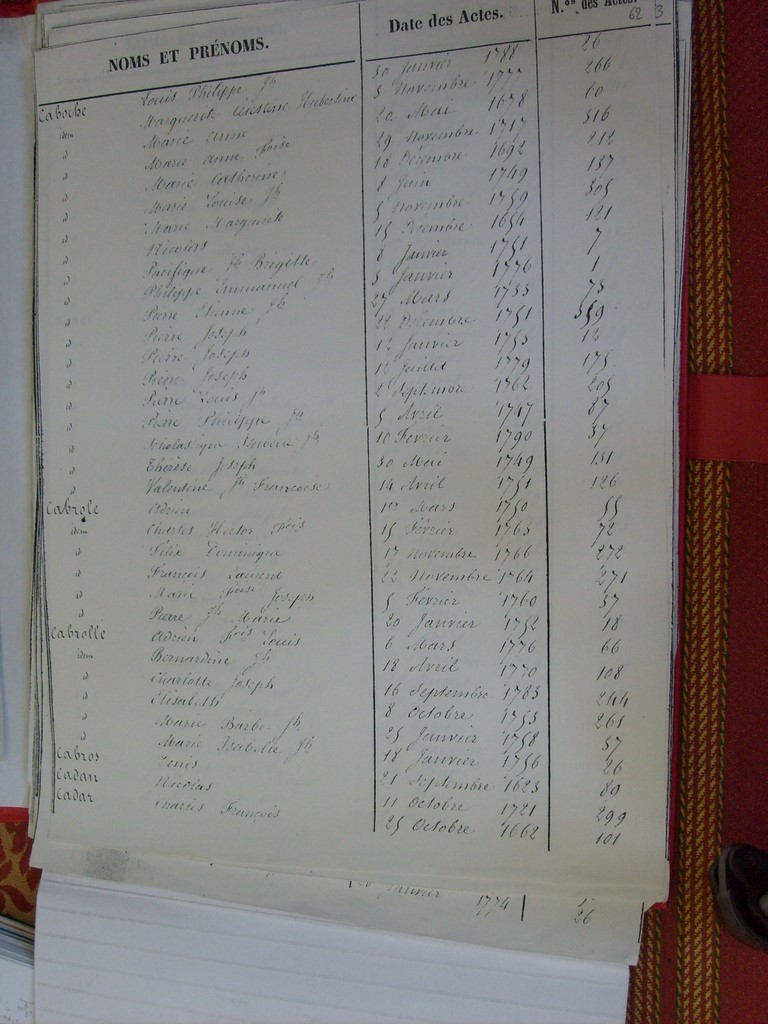 NOMS ET PRÉNOMS. Date des Actes. N.os des Actes. 62 3
Caboche Louis Philippe Jh 30 Janvier 1788 26
idem Marguerite Célestine Hubertine 3 Novembre 1777 266
d Marie Anne 20 Mai 1678 60
d Marie Anne Foise 29 Novembre 1717 316
d Marie Catherine 18 Décembre 1692 212
d Marie Louise Jh 8 Juin 1749 137
d Marie Marguerite 5 Novembre 1759 305
d Nicolas 15 Décembre 1654 121
d Pacifique Jh Brigitte 8 Janvier 1751 7
d Philippe Emmanuel Jh 3 Janvier 1776 1
d Pierre Etienne Jh 27 Mars 1733 73
d Pierre Joseph 22 Décembre 1751 359
d Pierre Joseph 12 Janvier 1753 12
d Pierre Joseph 12 Juillet 1779 175
d Pierre Louis Jh 2 Septembre 1762 205
d Pierre Philippe Jh 5 Avril 1747 87
d Scholastique Jh 10 Février 1790 37
d Thérèse Joseph 30 Mai 1749 131
d Valentine Jh Françoise 14 Avril 1751 126
Cabrole Adrien 1er Mars 1750 55
idem Charles Hector Fois 15 Février 1763 72
d Félix Dominique 17 Novembre 1766 272
d François Laurent 22 Novembre 1764 271
d Marie Foise Joseph 5 Février 1760 37
d Pierre Jh Marie 20 Janvier 1752 18
Cabrolle Adrien Fois Louis 6 Mars 1776 66
idem Bernardine Jh 18 Avril 1770 108
d Charlotte Joseph 16 Septembre 1783 244
d Elisabeth 8 Octobre 1753 261
d Marie Barbe Jh 25 Janvier 1758 37
d Marie Isabelle Jh 18 Janvier 1756 26
Cabros Denis 21 Septembre 1623 89
Cadan Nicolas 11 Octobre 1721 299
Cadar Charles François 25 Octobre 1662 101
Janvier 1774 26